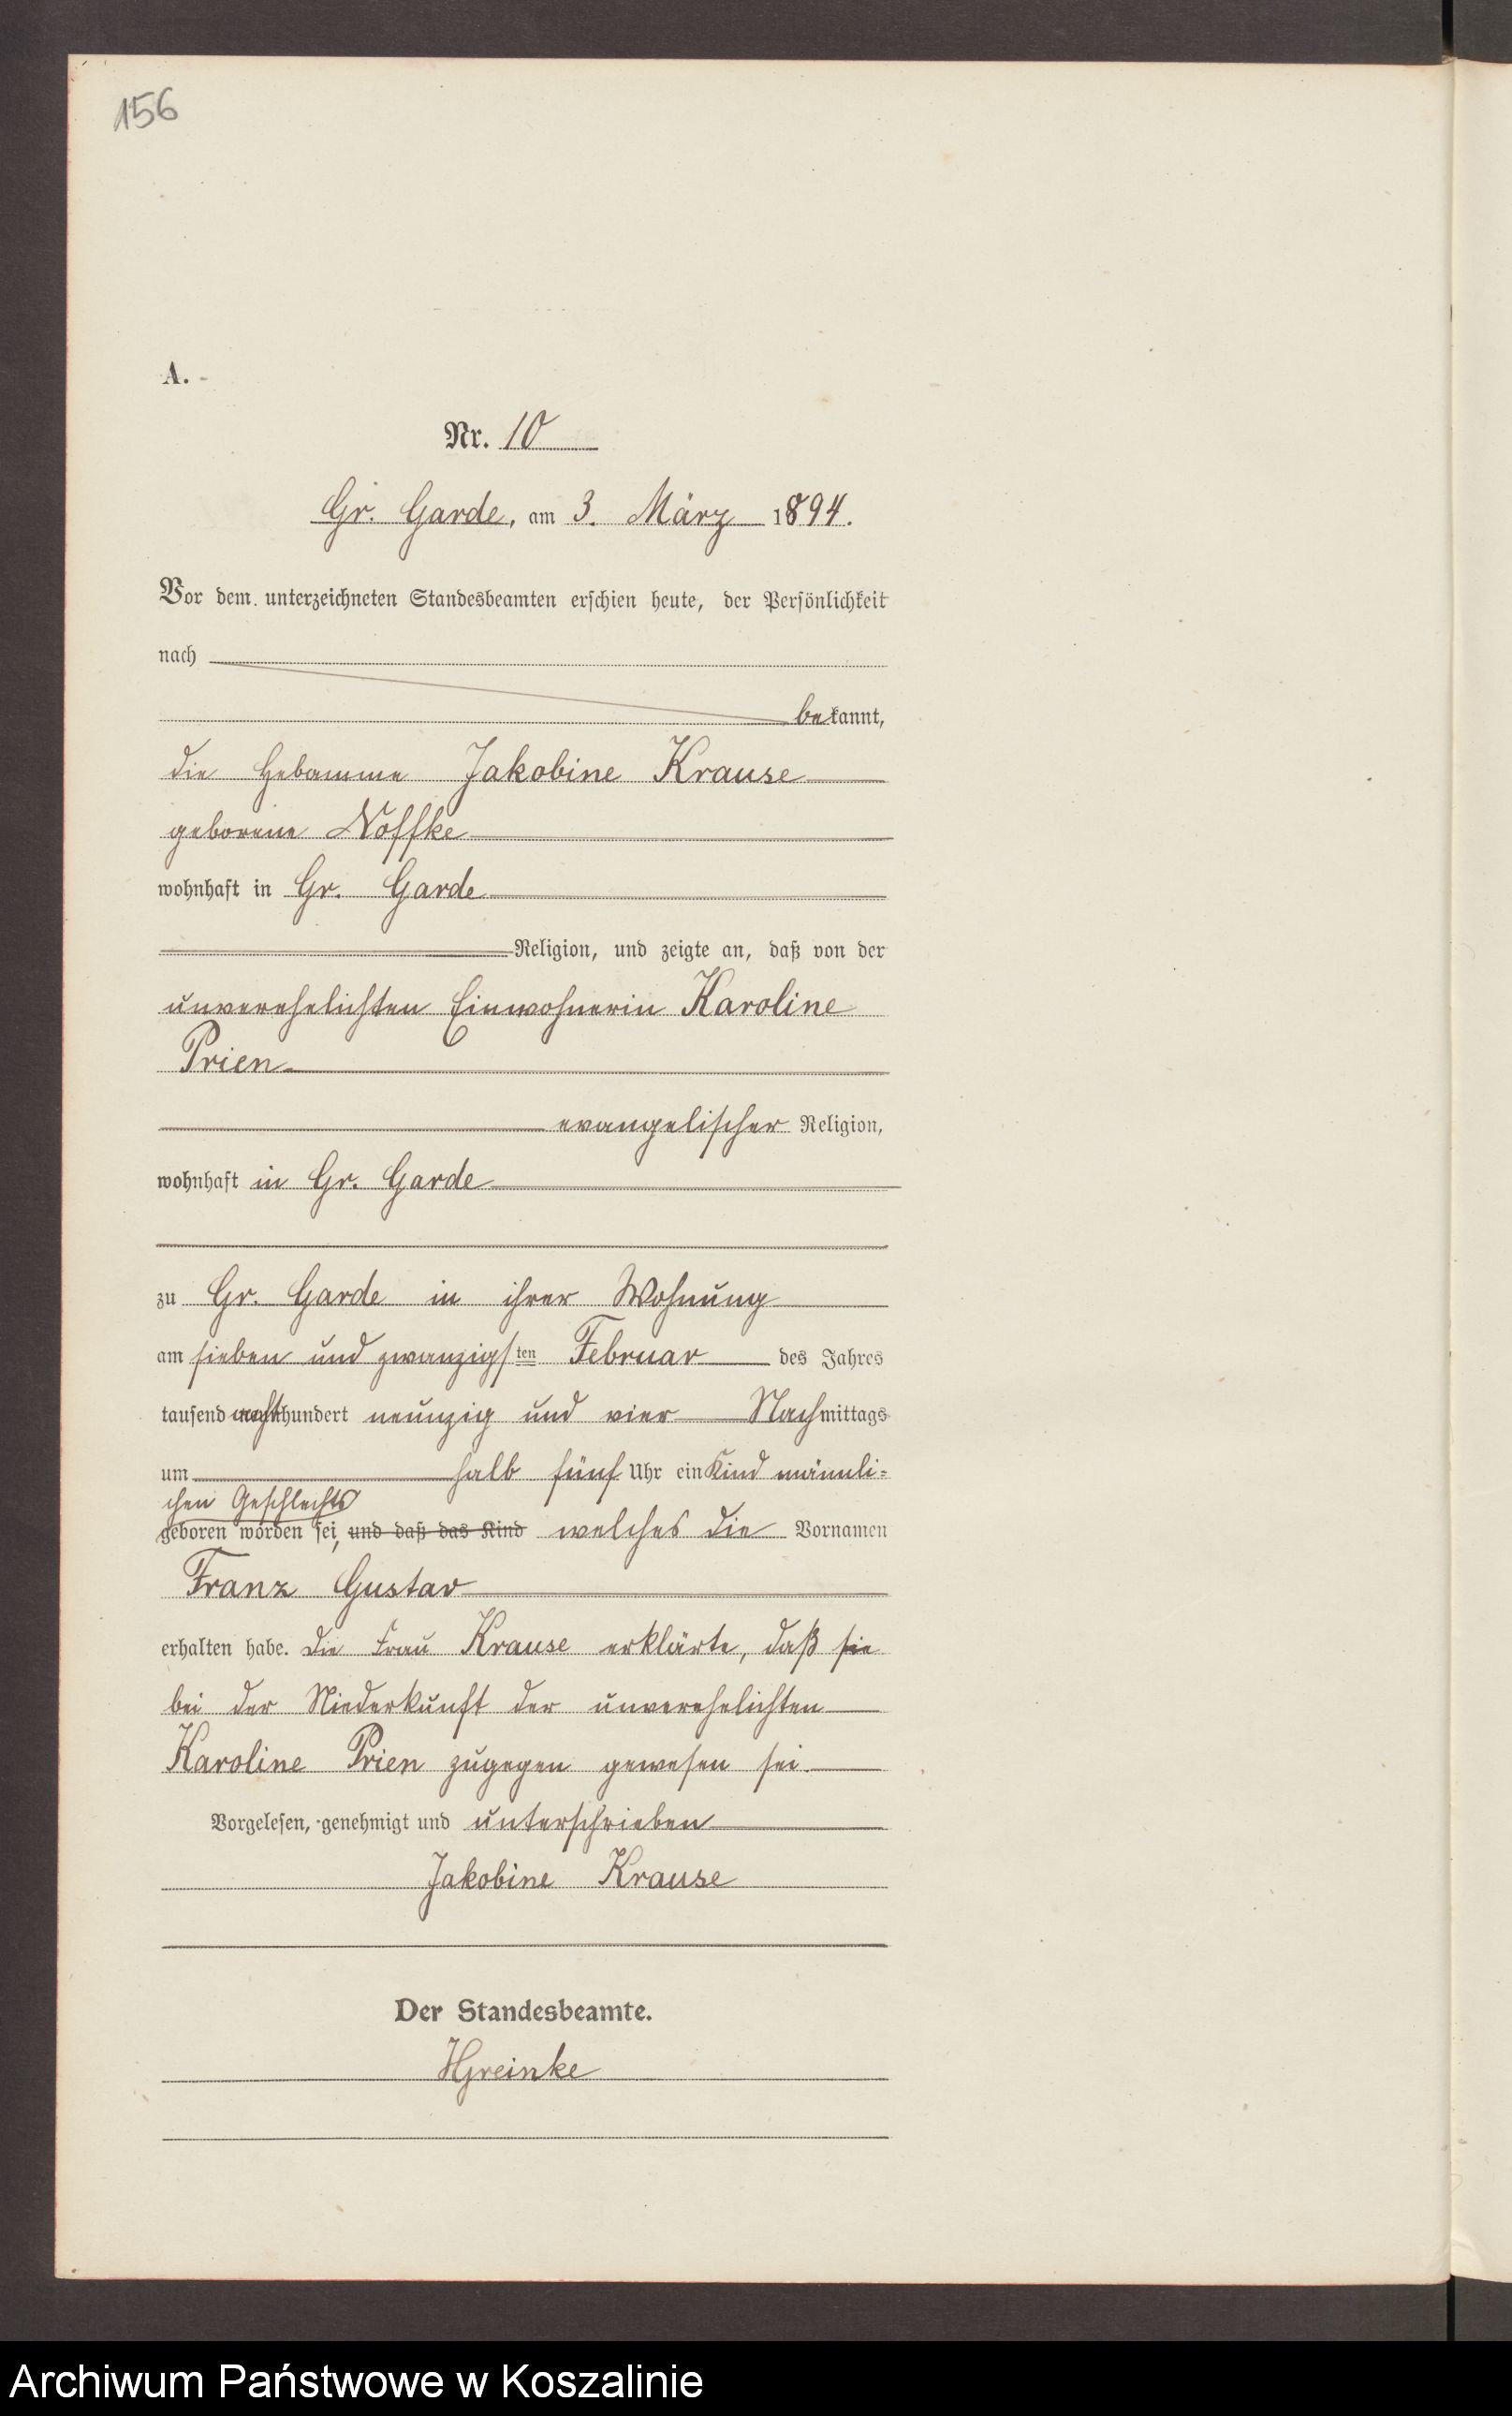 156
A.
Nr. 10
Gr. Garde, am 3. März 1894.
Vor dem unterzeichneten Standesbeamten erschien heute, der Persönlichkeit
nach
bekannt,
die Hebamme Jakobine Krause
geborene Noffke
wohnhaft in Gr. Garde
Religion, und zeigte an, daß von der
unverehelichten Einwohnerin Karoline
Prien
evangelischer Religion,
wohnhaft in Gr. Garde
zu Gr. Garde in ihrer Wohnung
am sieben und zwanzigsten Februar des Jahres
tausend achthundert neunzig und vier Nachmittags
um halb fünf Uhr ein Kind männli=
chen Geschlechts
geboren worden sei, und daß das Kind welches die Vornamen
Franz Gustav
erhalten habe. Die Frau Krause erklärte, daß sie
bei der Niederkunft der unverehelichten
Karoline Prien zugegen gewesen sei.
Vorgelesen, genehmigt und unterschrieben
Jakobine Krause
Der Standesbeamte.
Archiwum Państwowe w Koszalinie